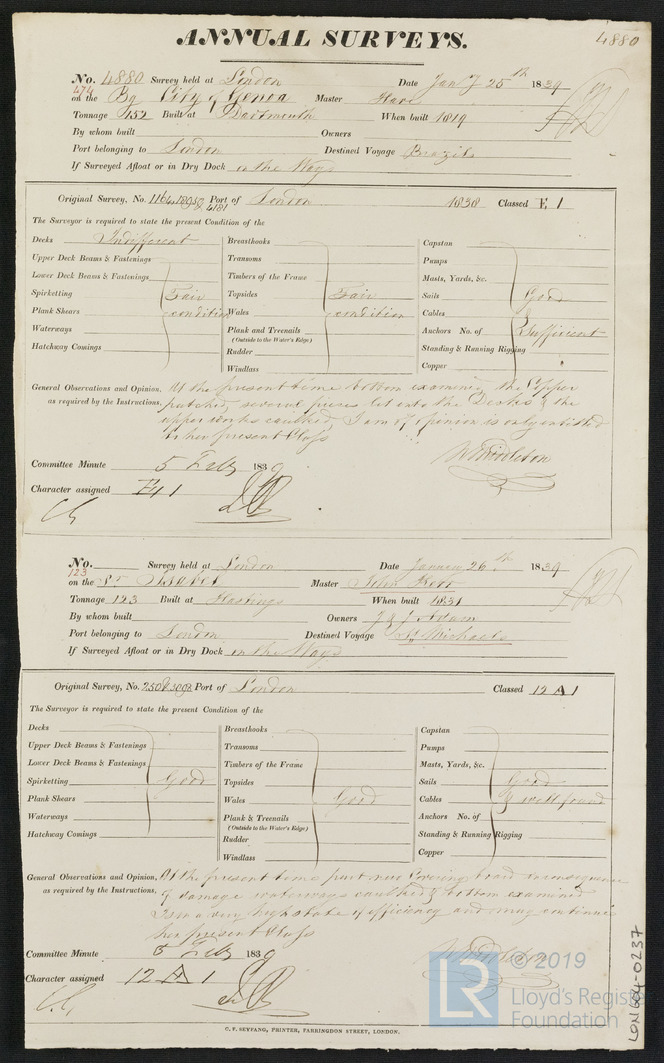 ANNUAL SURVEYS.
4880
No. 4880 Survey held at London Date Jany 25th 1839
474
on the Bg City of Genoa Master
Tonnage 152 Built at Dartmouth When built 1819
By whom built Owners
Port belonging to London Destined Voyage Brazils
If Surveyed Afloat or in Dry Dock on the Ways
Original Survey, No. Port of London 1838 Classed E 1
4181
The Surveyor is required to state the present Condition of the
Decks Indifferent Breasthooks Capstan
Upper Deck Beams & Fastenings Transoms Pumps
Lower Deck Beams & Fastenings Timbers of the Frame Masts, Yards, &c.
Spirketting Fair Topsides Fair Sails Good
Plank Shears condition Wales condition Cables &
Waterways Plank and Treenails Anchors No. of Sufficient
(Outside to the Water's Edge)
Hatchway Comings Rudder Standing & Running Rigging
Windlass Copper
General Observations and Opinion, At the present time bottom examined, the Copper
as required by the Instructions. patched, several pieces let into the Decks & the
upperworks caulked, I am of opinion is only entitled
to her present Class
Committee Minute 5 Feby 1839
Character assigned E 1
No. Survey held at London Date January 26th 1839
123
on the Master John
Tonnage 123 Built at Hastings When built 1831
By whom built Owners J & J Adam
Port belonging to London Destined Voyage St Michaels
If Surveyed Afloat or in Dry Dock on the Ways
Original Survey, No. Port of London Classed 12 A 1
The Surveyor is required to state the present Condition of the
Decks Breasthooks Capstan
Upper Deck Beams & Fastenings Transoms Pumps
Lower Deck Beams & Fastenings Timbers of the Frame Masts, Yards, &c.
Spirketting Good Topsides Sails Good
Plank Shears Wales Good Cables & well found
Waterways Plank & Treenails Anchors No. of
(Outside to the Water's Edge)
Hatchway Comings Rudder Standing & Running Rigging
Windlass Copper
General Observations and Opinion, At the present time part new Covering board in consequence
as required by the Instructions, of damage waterways caulked & bottom examined
Is in a very high state of efficiency and may continue
her present Class
Committee Minute 5 Feby 1839
Character assigned 12 A 1
C. F. SEYFANG, PRINTER, FARRINGDON STREET, LONDON.
LON604-0237
LR © 2019
Lloyd's Register
Foundation